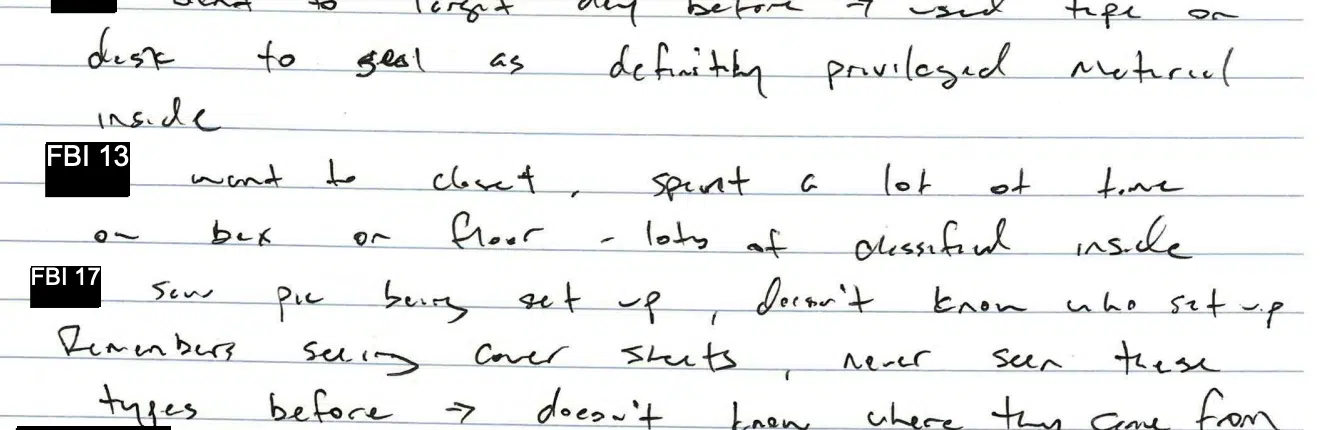 to target day before → used tape on
desk to seal as definitely privileged material
inside
FBI 13 went to closet, spent a lot of time
on box on floor - lots of classified inside
FBI 17 saw pic being set up, doesn't know who set up
Remembers seeing cover sheets, never seen these
types before → doesn't know where they came from